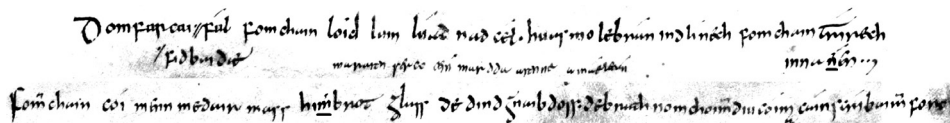 Domfarcai // fál fomchain loid lain lúad nad cél . huas mo lebrán indlínech fomchain trírech
// fidbaidæ inna nén..,
Fom̄chain cói men̄ medair mass himbrot glass de dindgnaib doss . debrath nomchoim̄diu cóima cáinscríbaim̄ foro